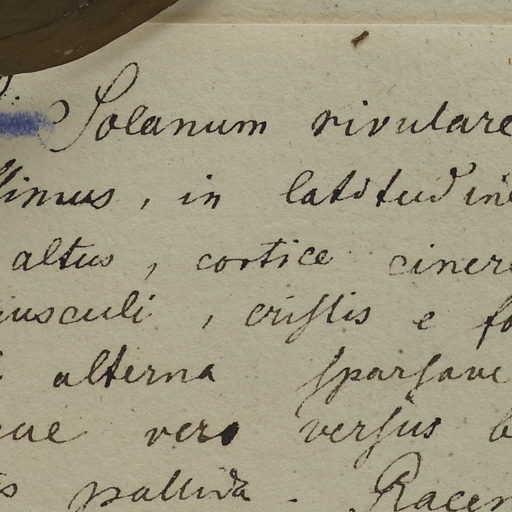 Solanum rivulare
in latitudine
altus, cortice ciner
iusculi, cristis e fo
alterna sparsave
vero versus b
pallida. Racem